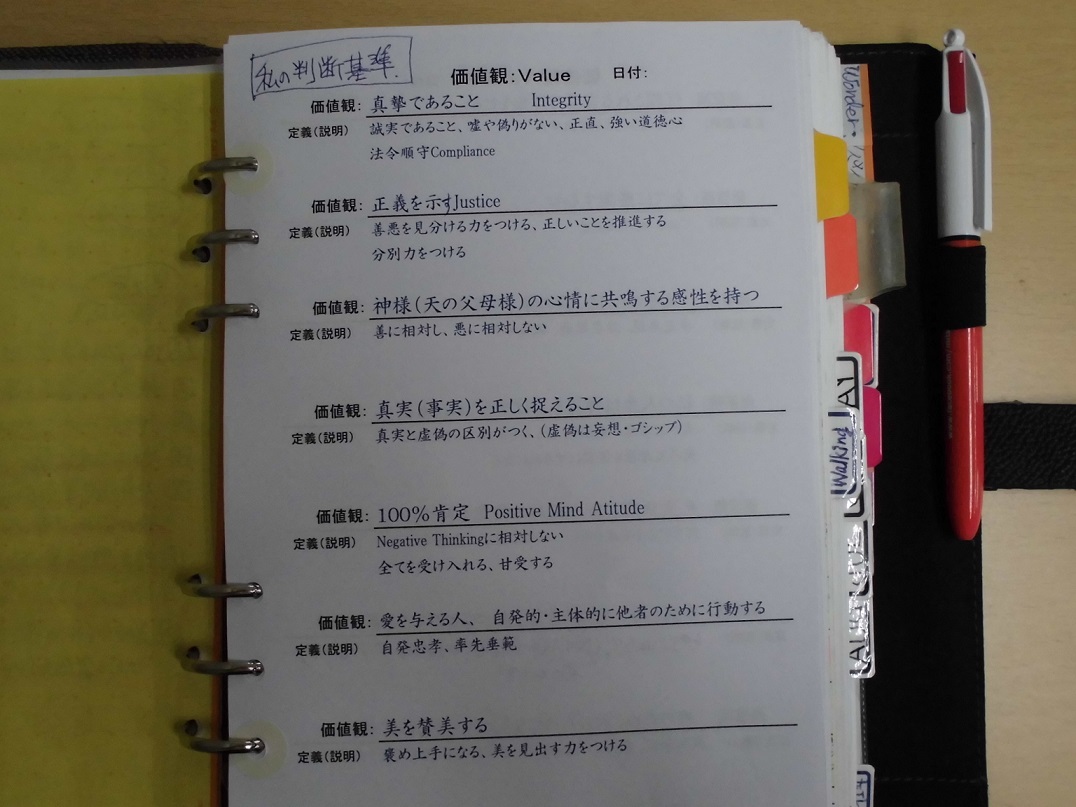 私の判断基準.
価値観：Value　日付：
価値観：真摯であること　Integrity
定義（説明）　誠実であること、嘘や偽りがない、正直、強い道徳心
法令順守Compliance
価値観：正義を示すJustice
定義（説明）　善悪を見分ける力をつける、正しいことを推進する
分別力をつける
価値観：神様（天の父母様）の心情に共鳴する感性を持つ
定義（説明）　善に相対し、悪に相対しない
価値観：真実（事実）を正しく捉えること
定義（説明）　真実と虚偽の区別がつく、（虚偽は妄想・ゴシップ）
価値観：100％肯定　Positive Mind Atitude
定義（説明）　Negative Thinkingに相対しない
全てを受け入れる、甘受する
価値観：愛を与える人、　自発的・主体的に他者のために行動する
定義（説明）　自発忠孝、率先垂範
価値観：美を賛美する
定義（説明）　褒め上手になる、美を見出す力をつける
Walking